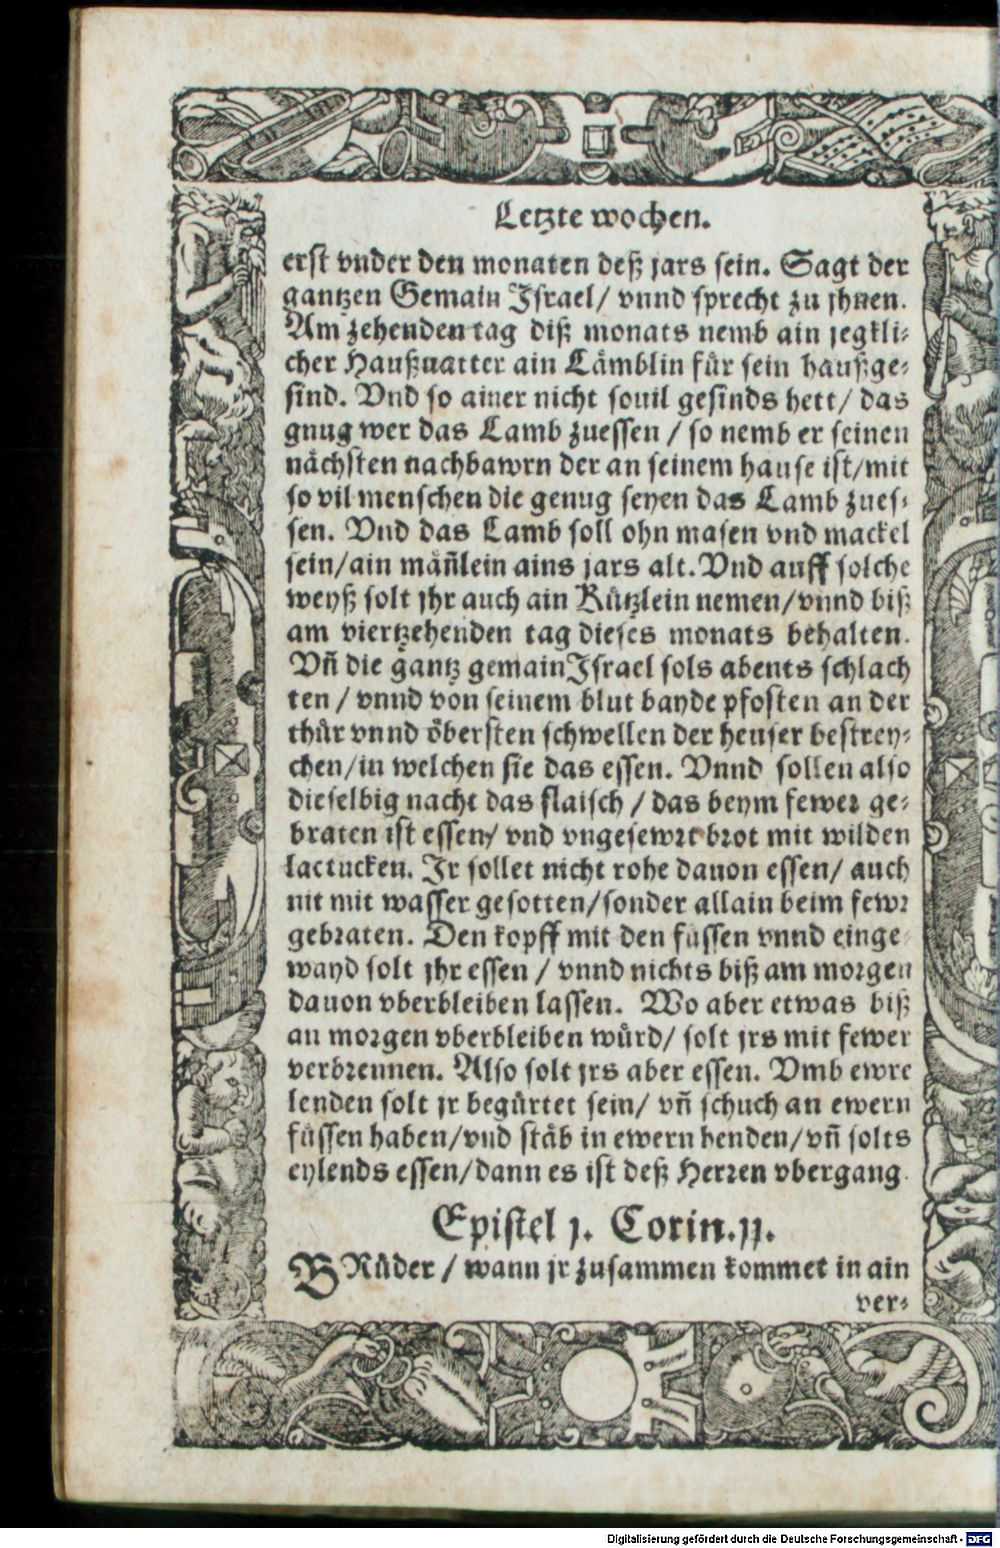 Letzte wochen.
erst vnder den monaten deß jars sein. Sagt der
gantzen Gemain Israel/ vnnd sprecht zu jhnen.
Am zehenden tag diß monats nemb ain jegkli-
cher Haußuatter ain Lämblin für sein haußge-
sind. Vnd so ainer nicht souil gesinds hett/ das
gnug wer das Lamb zuessen / so nemb er seinen
nächsten nachbawrn der an seinem hause ist/mit
so vil menschen die genug seyen das Lamb zues-
sen. Vnd das Lamb soll ohn masen vnd mackel
sein/ain mäñlein ains jars alt. Vnd auff solche
weyß solt jhr auch ain Kützlein nemen/vnnd biß
am viertzehenden tag dieses monats behalten.
Vñ die gantz gemain Israel sols abents schlach
ten / vnnd von seinem blut bayde pfosten an der
thůr vnnd öbersten schwellen der heuser bestrey-
chen/in welchen sie das essen. Vnnd sollen also
dieselbig nacht das flaisch / das beym fewer ge-
braten ist essen/ vnd vngesewrt brot mit wilden
lactucken. Ir sollet nicht rohe dauon essen/ auch
nit mit wasser gesotten/sonder allain beim fewr
gebraten. Den kopff mit den füssen vnnd einge-
wayd solt jhr essen / vnnd nichts biß am morgen
dauon vberbleiben lassen. Wo aber etwas biß
an morgen vberbleiben würd/ solt jrs mit fewer
verbrennen. Also solt jrs aber essen. Vmb ewre
lenden solt jr begürtet sein/ vñ schuch an ewern
füssen haben/vnd stäb in ewern henden/vñ solts
eylends essen/dann es ist deß Herren vbergang.
Epistel j. Corin.jj.
BRüder / wann jr zusammen kommet in ain
ver-
Digitalisierung gefördert durch die Deutsche Forschungsgemeinschaft - DFG